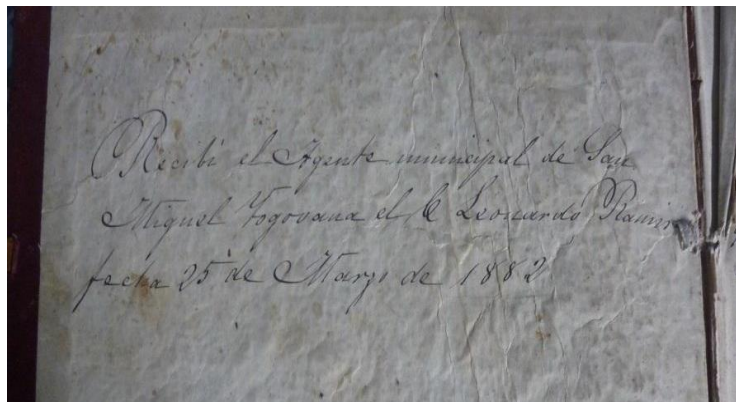 Recibí el Agente municipal de San
Miguel Togovana el C Leonardo Ramir
fecha 25 de Marzo de 1882